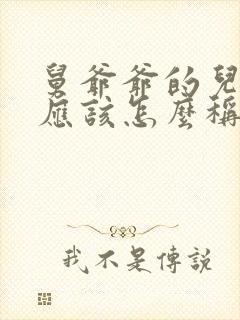 舅爺爺的兒
應該怎麼稱
我不是傳說